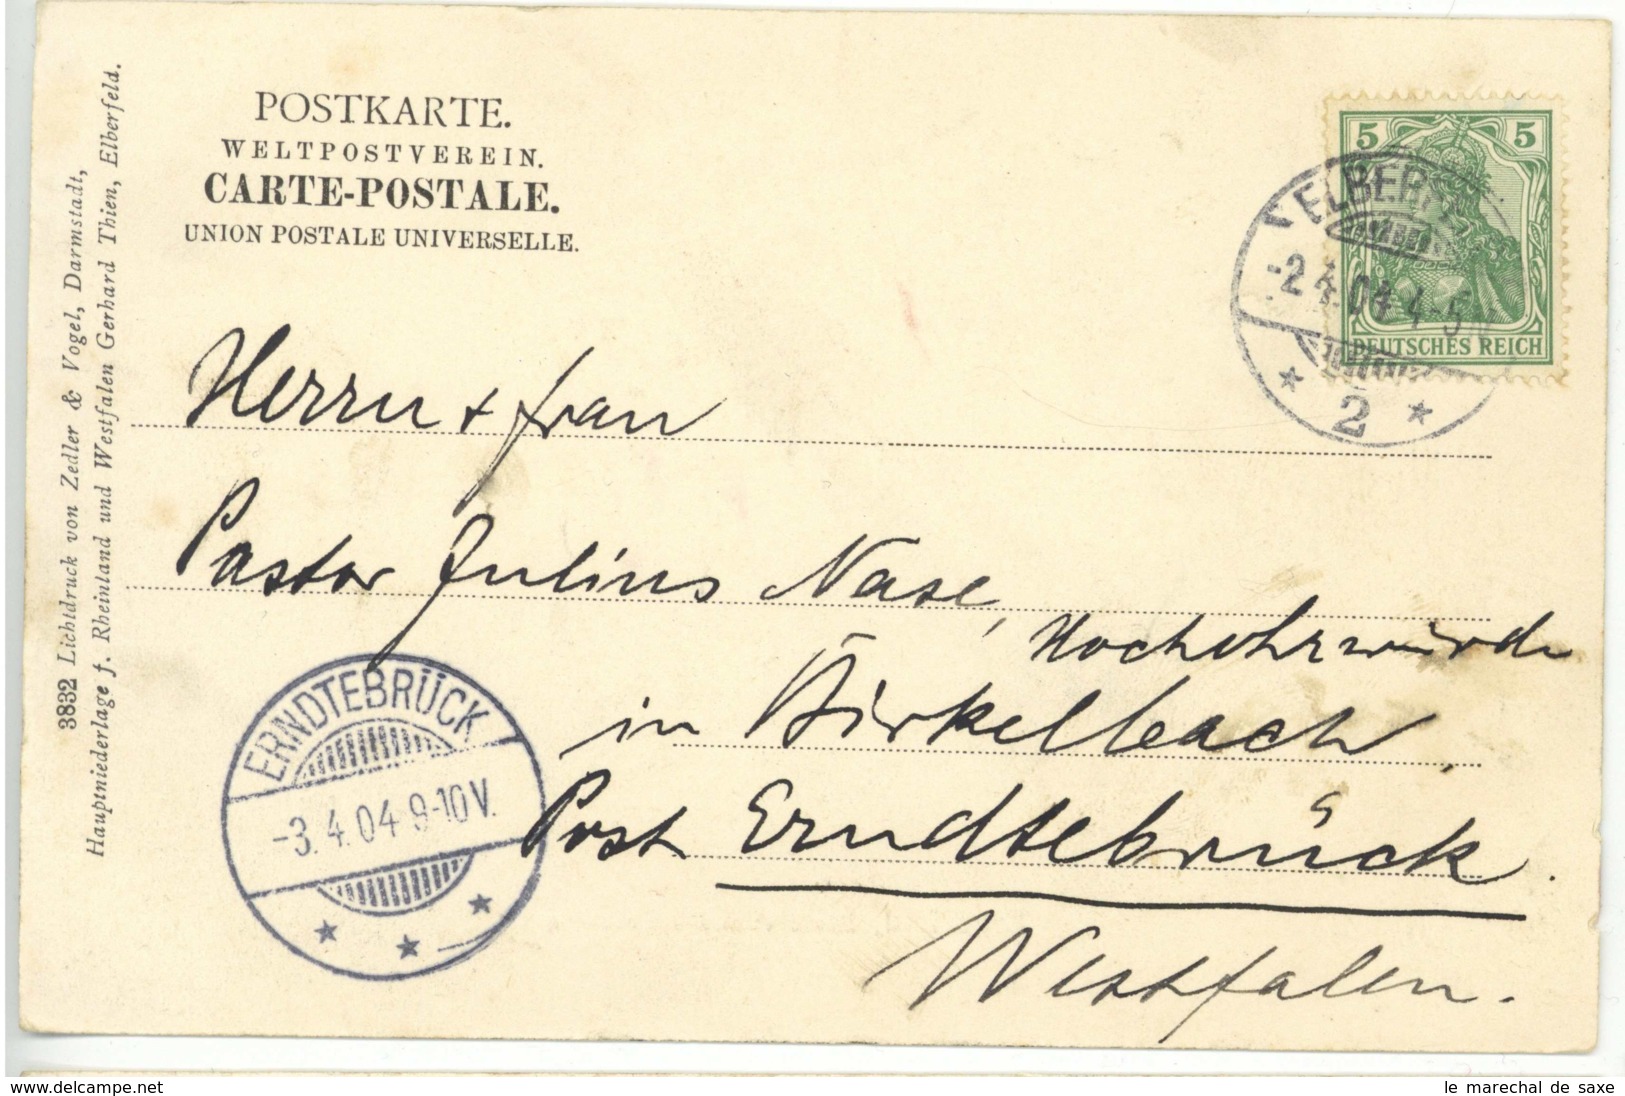 POSTKARTE.
WELTPOSTVEREIN.
CARTE-POSTALE.
UNION POSTALE UNIVERSELLE.
3832 Lichtdruck von Zedler & Vogel, Darmstadt,
Hauptniederlage f. Rheinland und Westfalen Gerhard Thien, Elberfeld.
5 5
DEUTSCHES REICH
-2.4.04. 4-5
2
Herrn + Frau
Pastor Julius Nase,
Hochehrwürde
in Birkelbach,
Post Erndtebrück.
Westfalen.
ERNDTEBRÜCK
-3.4.04 9-10 V.
www.delcampe.net
le marechal de saxe